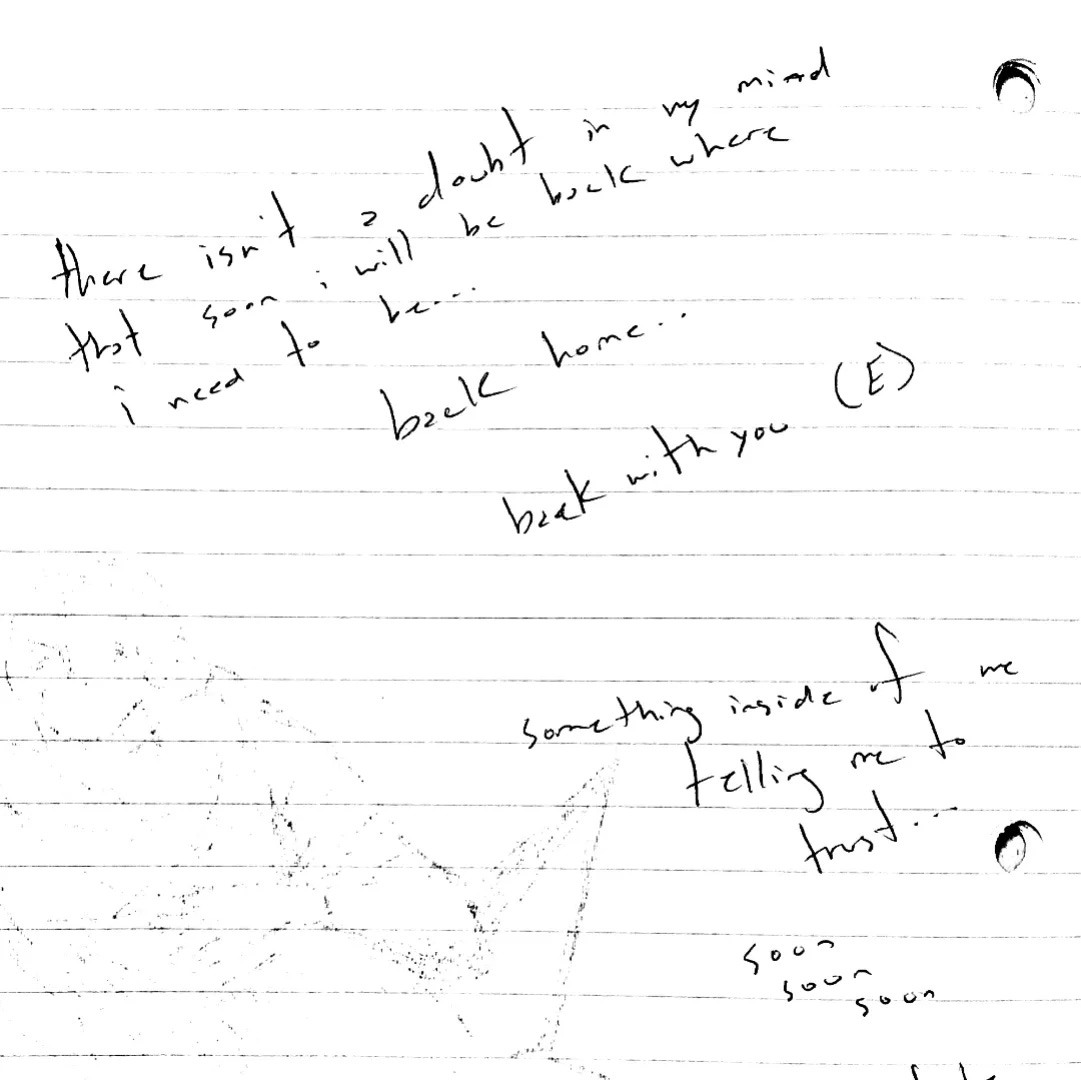 there isn't a doubt in my mind
that soon i will be back where
i need to be...
back home...
back with you (E)
something inside of me
telling me to
trust...
soon
soon
soon